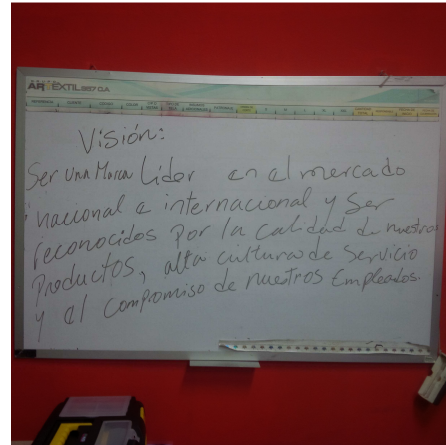 ARTEXTIL 2007 C.A
Visión:
Ser una Marca Líder en el mercado
nacional e internacional y ser
reconocidos por la calidad de nuestros
Productos, alta cultura de servicio
y el compromiso de nuestros Empleados.